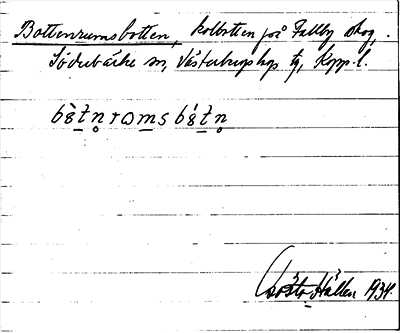 Bottenrumsbotten, kolbotten på Fallby skog,
Söderbärke sn, Västerbergslags tg, Kopp. l.
bòtn̥roms bótn̥
Gösta Hallen 1934.